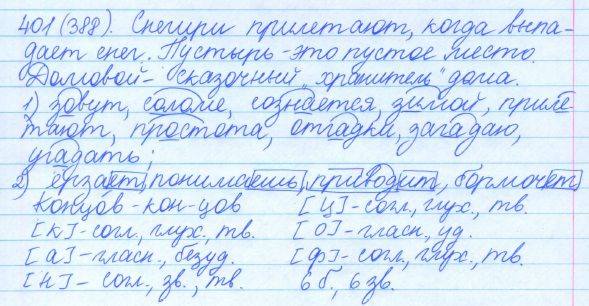 401 (388). Снегири прилетают, когда выпа-
дает снег. Пустырь - это пустое место.
Домовой - сказочный "хранитель" дома.
1) зовут, соломе, сознается, зимой, приле-
тают, простота, отгадки, загадаю,
угадать;
2) ёрзает, понимаешь, приводит, бормочет
Концов - кон-цов
[к] - согл., глух., тв.
[а] - гласн., безуд.
[н] - согл., зв., тв.
[ц] - согл., глух., тв.
[о] - гласн., уд.
[ф] - согл., глух., тв.
6 б., 6 зв.